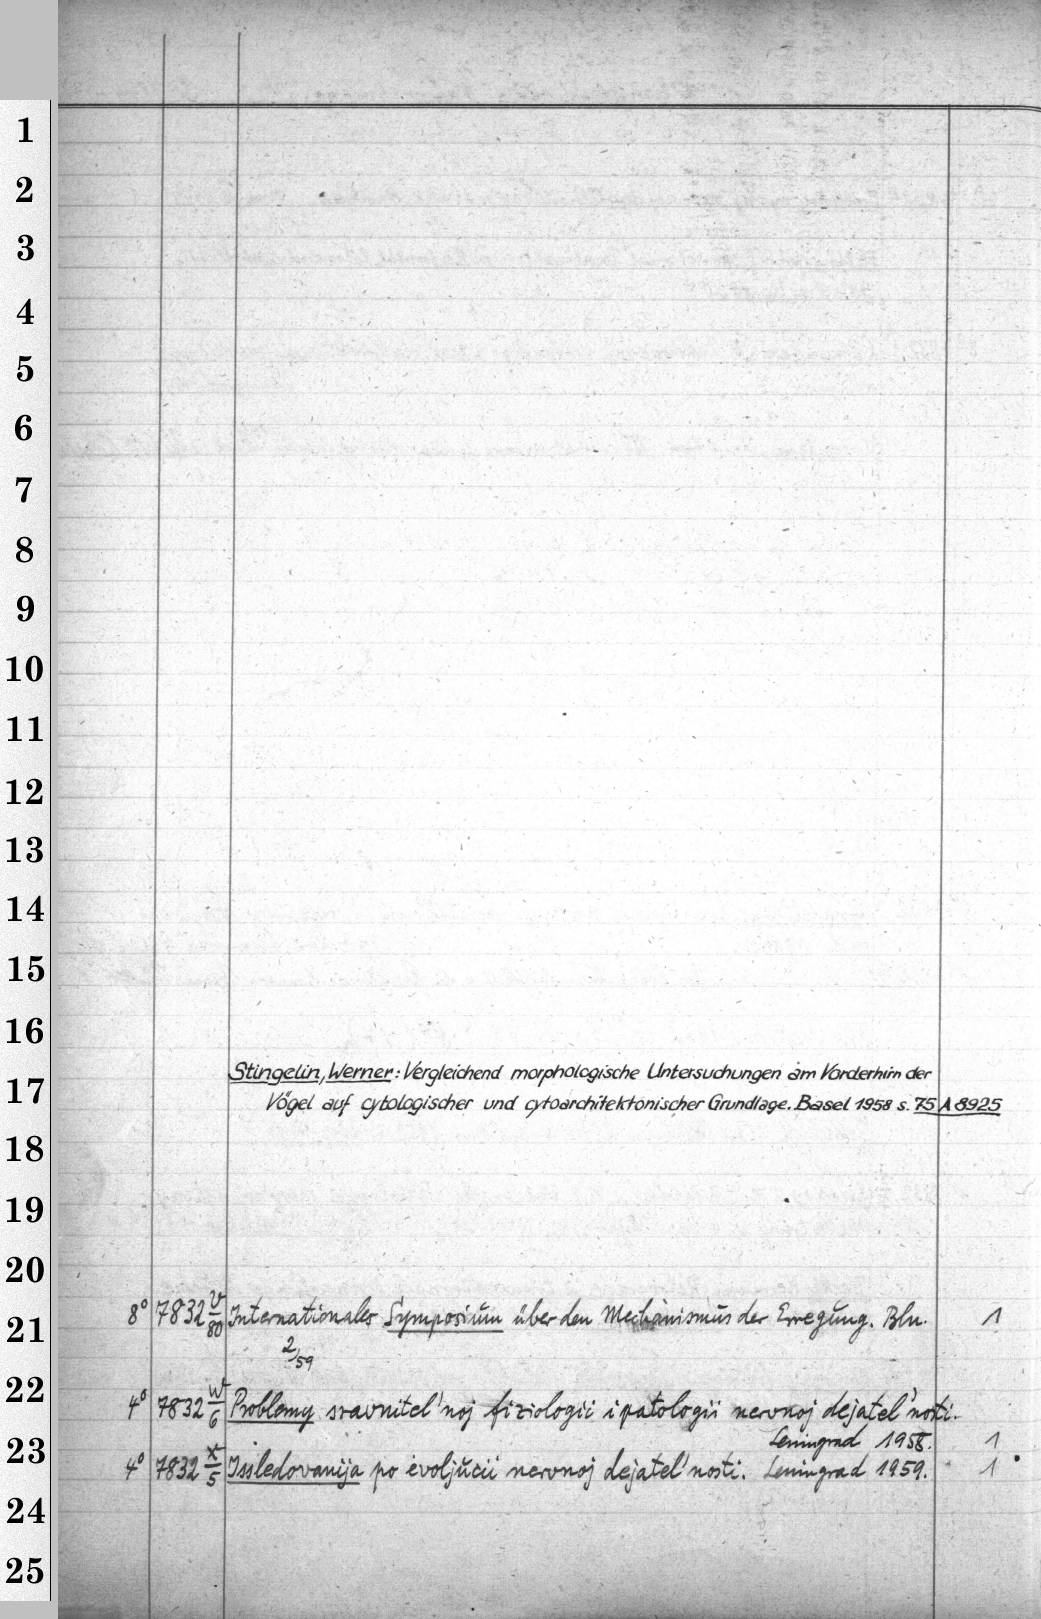 1
2
3
4
5
6
7
8
9
10
11
12
13
14
15
16
17 Stingelin, Werner: Vergleichend morphologische Untersuchungen am Vorderhirn der
Vögel auf cytologischer und cytoarchitektonischer Grundlage. Basel 1958 s. 75 A 8925
18
19
20
21 8° 7832 v/80 Internationales Symposium über den Mechanismus der Erregung. Bln. 1
2/59
22 4° 7832 w/6 Problemy sravnitel'noj fiziologii i patologii nervnoj dejatel'nosti.
Leningrad 1958. 1
23 4° 7832 x/5 Issledovanija po evoljucii nervnoj dejatel'nosti. Leningrad 1959. 1
24
25